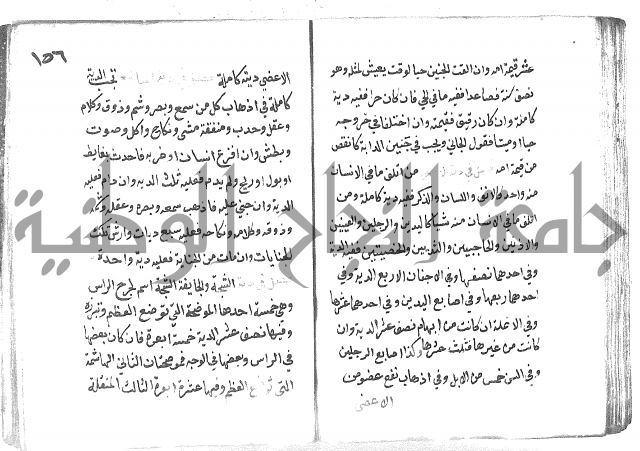 عشر قيمة امه وان القت الجنين حيا لوقت يعيش لمثله وهو
نصف سنة فصاعدا ففيه ما في الحي فان كان حرا ففيه دية
كاملة وان كان رقيق فقيمته وان اختلفا في خروجه
حيا او ميتا فقول الجاني ويجب في جنين الدابة ما نقص
من قيمة امه من اتلف ما في الانسان
منه واحد كالانف واللسان والذكر ففيه دية كاملة ومن
اتلف ما في الانسان منه شيئان كاليدين والرجلين والعينين
والاذنين والحاجبين والثديين والخصيتين ففيه الدية
وفي احدهما نصفها وفي الاجفان الاربع الدية وفي
احدهما ربعها وفي اصابع اليدين الدية وفي احدها عشرها
وفي الانملة ان كانت من ابهام نصف عشر الدية وان
كانت من غيرها فثلث عشرها وكذا اصابع الرجلين
وفي السن خمس من الابل وفي اذهاب نفع عضو من
الاعضى
١٥٦
الاعضى ديته كاملة تجب الدية
كاملة في اذهاب كل من سمع وبصر وشم وذوق وكلام
وعقل وحدب ومنفعة مشي ونكاح واكل وصوت
وبطش وان افزع انسان او ضربه فاحدث بغايط
او بول او ريح ولم يدم فعليه ثلث الدية وان دام فعليه
الدية وان جنى عليه فاذهب سمعه وبصره وعقله وشمه
وذوقه وكلامه ونكاحه فعليه سبع ديات وارش تلك
الجنايات وان مات من الجناية فعليه دية واحدة
في دية الشجة والجايفة الشجة اسم لجرح الراس
وهي خمسة احدها الموضحة التي توضح العظم وتبرزه
وفيها نصف عشر الدية خمسة ابعرة فان كان بعضها
في الراس وبعضها في الوجه فموضحتان الثاني الهاشمة
التي توضح العظم وفيها عشرة ابعرة الثالث المنقلة
جامعة النجاح الوطنية